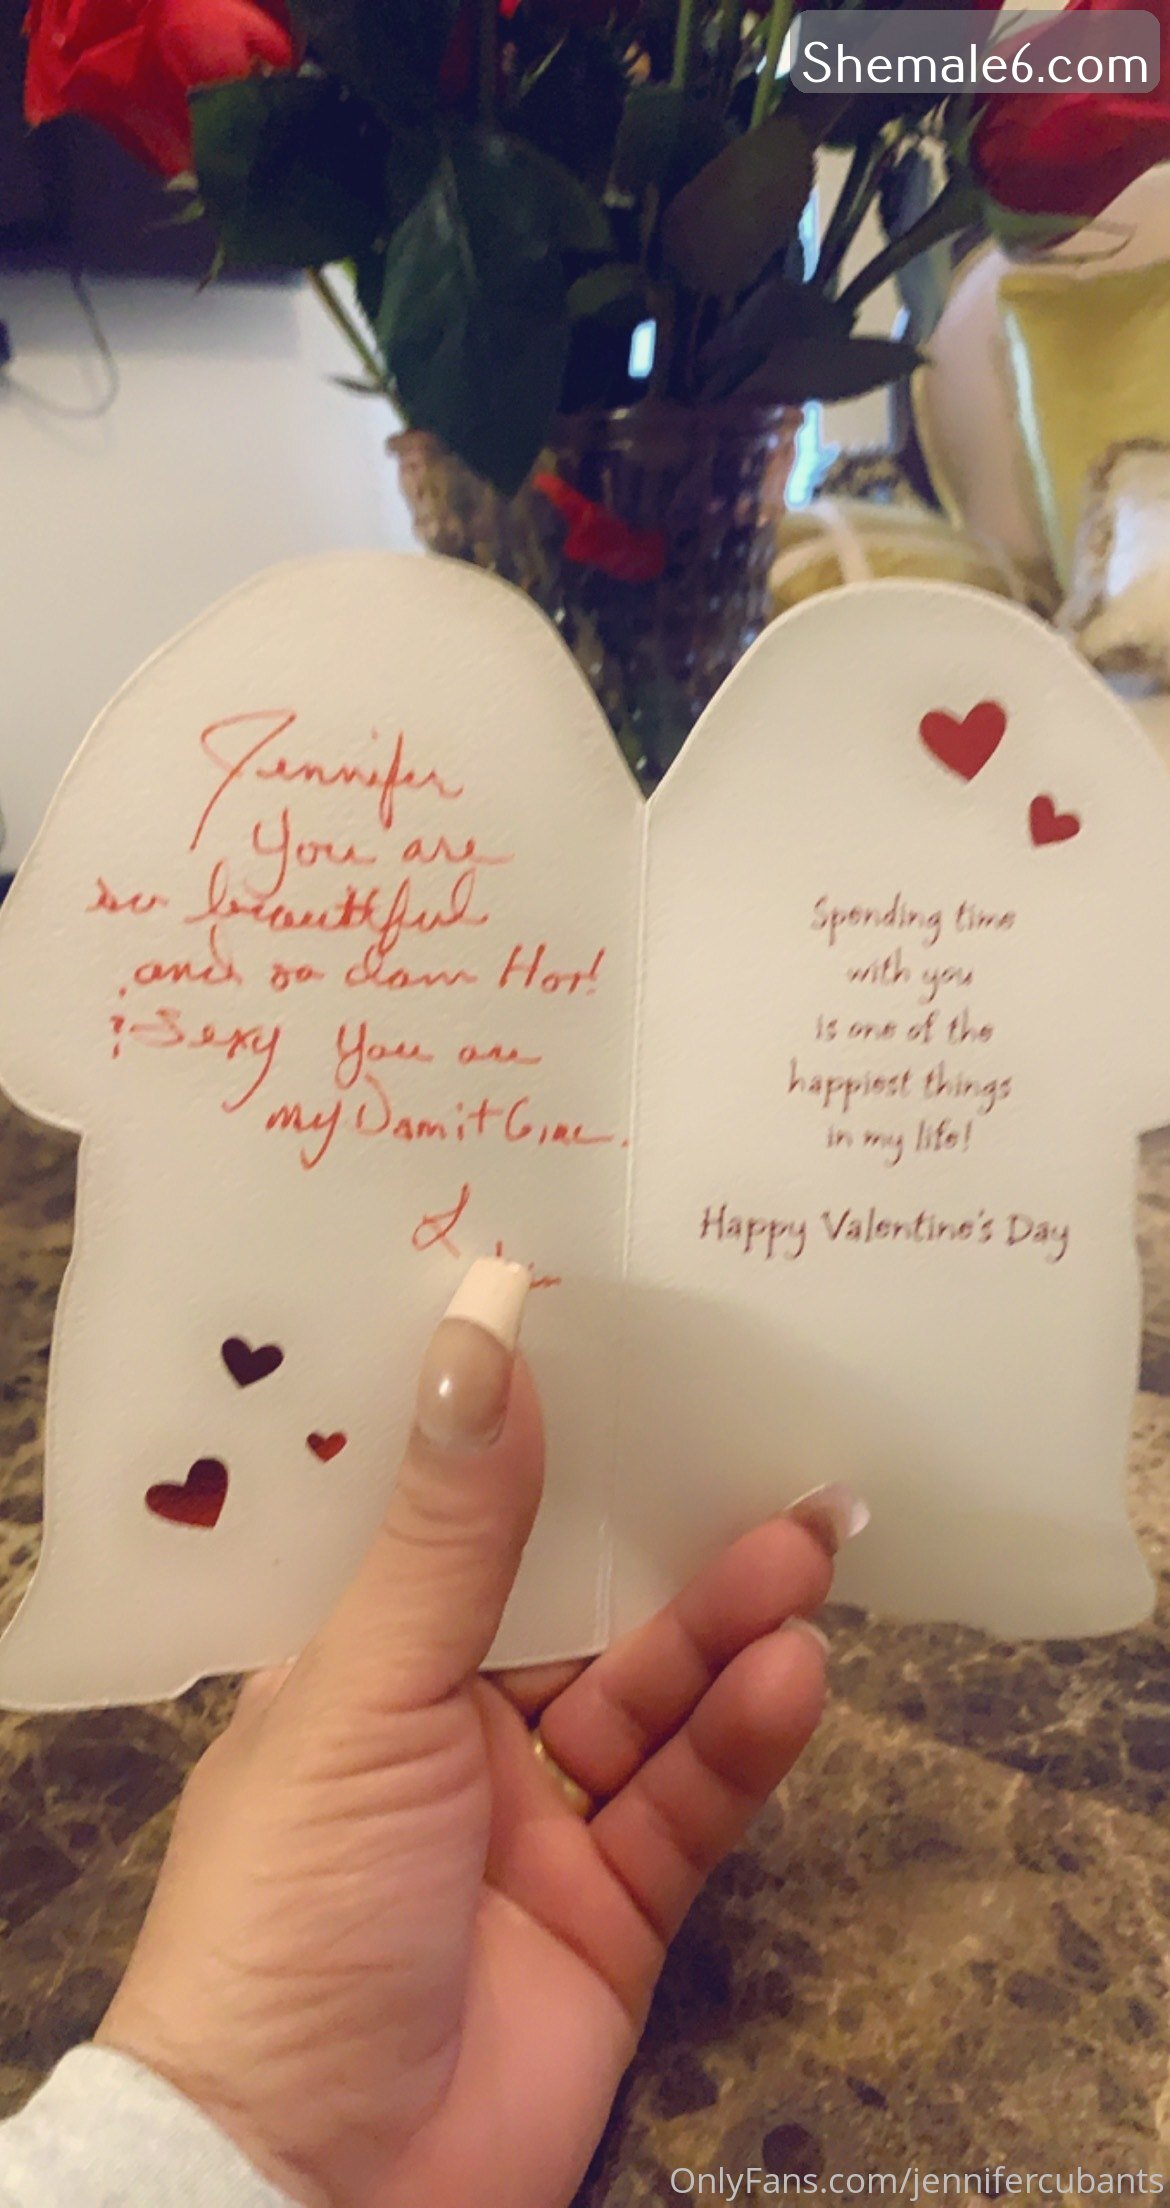 Shemale6.com
Jennifer
You are
so beautiful
and so dam Hot!
& Sexy You are
my Damit Girl.
Spending time
with you
is one of the
happiest things
in my life!
Happy Valentine's Day
OnlyFans.com/jennifercubants